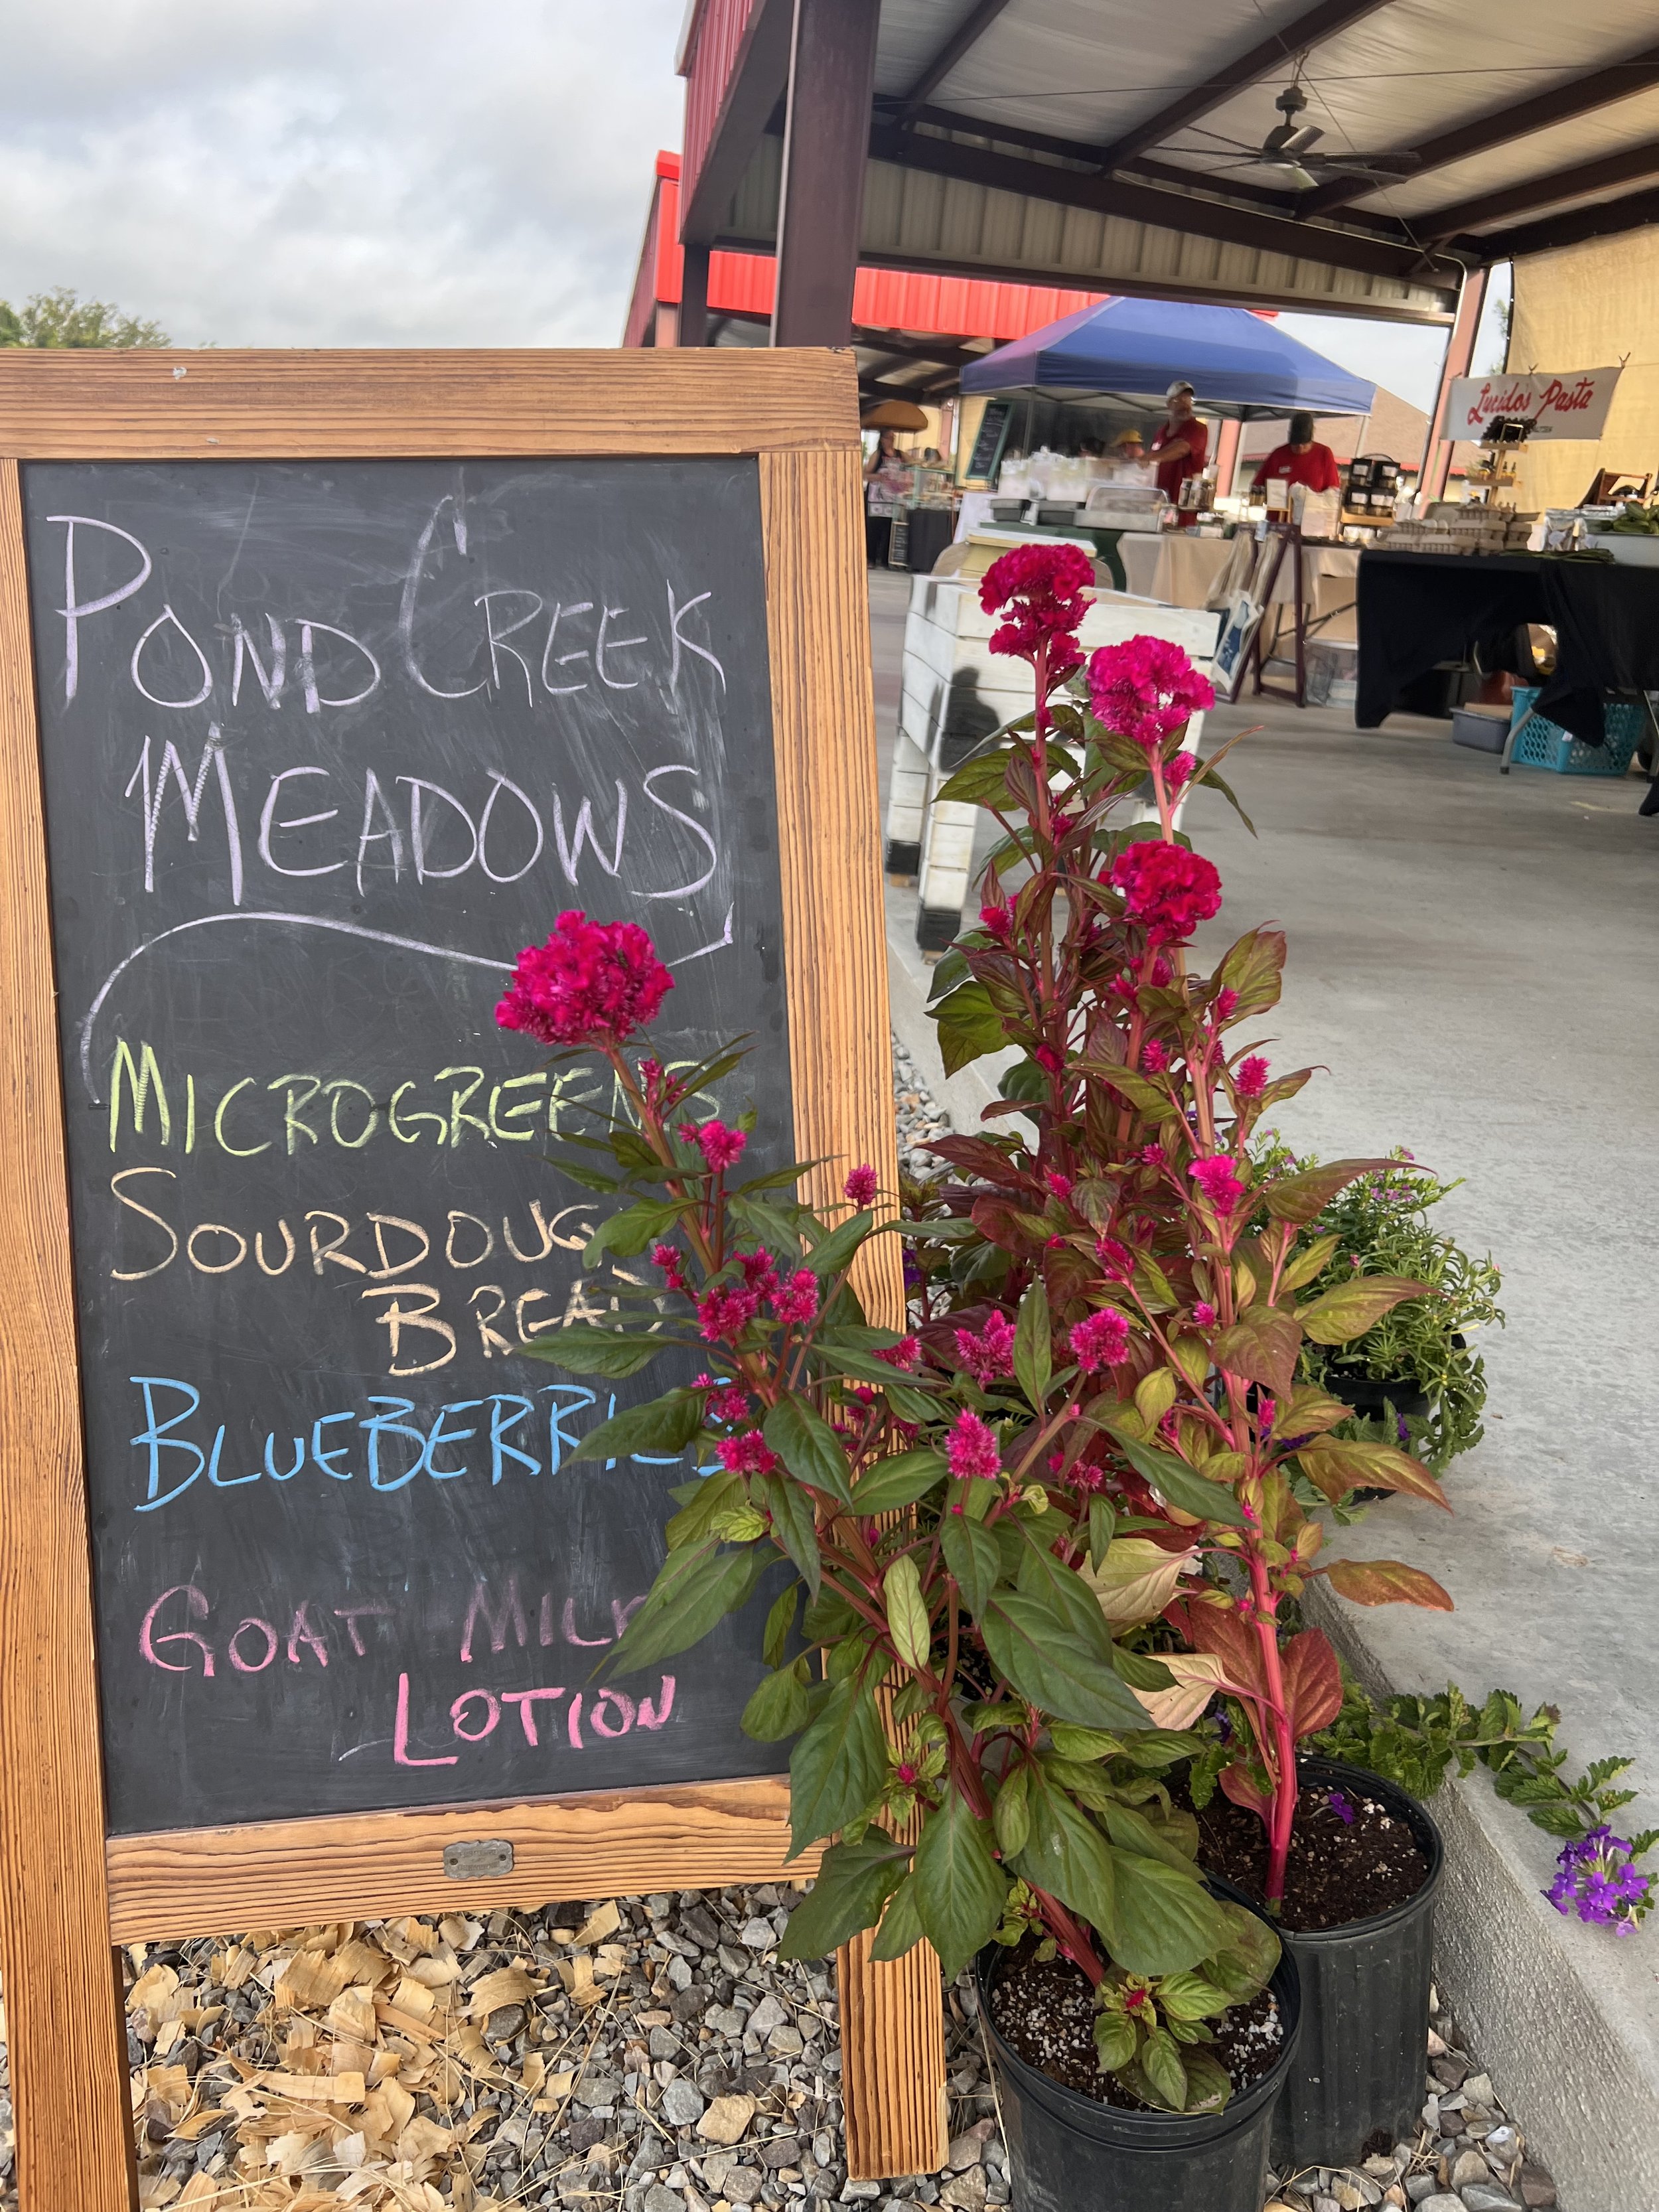 POND CREEK
MEADOWS
MICROGREENS
SOURDOUG
BREAD
BLUEBERRIES
GOAT MILK
LOTION
Lucido's Pasta